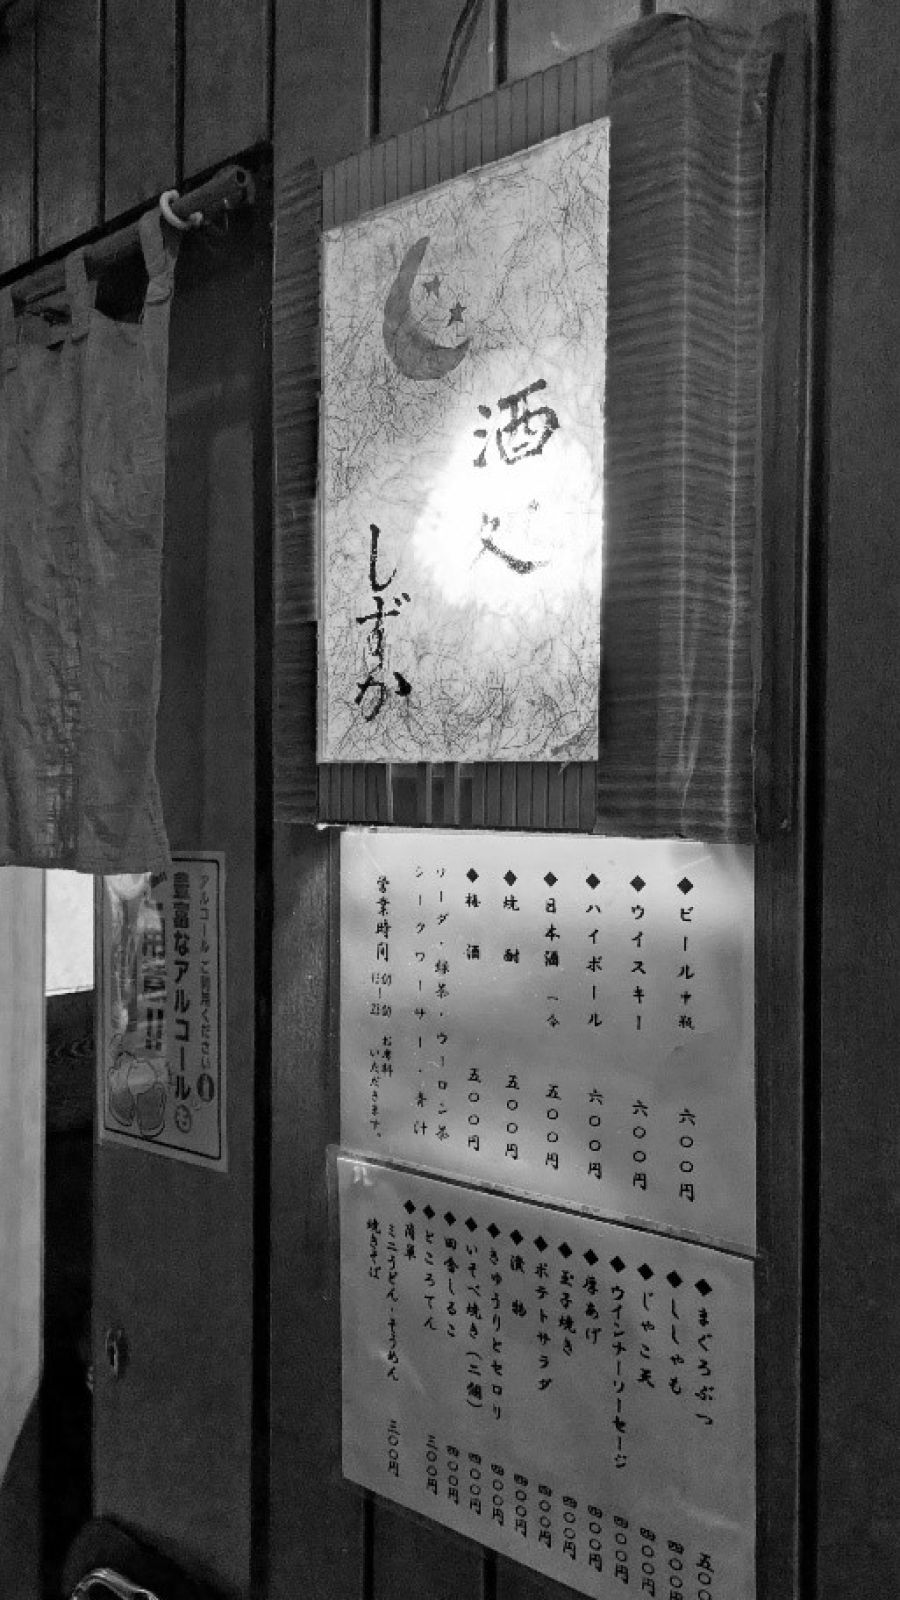 酒処
しずか
◆ビール中瓶 六〇〇円
◆ウイスキー 六〇〇円
◆ハイボール 六〇〇円
◆日本酒 一合 五〇〇円
◆焼酎 五〇〇円
◆梅酒 五〇〇円
ソーダ・緑茶・ウーロン茶
シークワーサー・青汁
営業時間
いただきます。
◆まぐろぶつ 五〇〇
◆ししゃも 四〇〇
◆じゃこ天 四〇〇円
◆ウインナーソーセージ 四〇〇円
◆唐あげ 四〇〇円
◆玉子焼き 四〇〇円
◆ポテトサラダ 四〇〇円
◆漬物 四〇〇円
◆きゅうりとセロリ 四〇〇円
◆いそべ焼き(二個) 四〇〇円
◆田舎しるこ 四〇〇円
◆ところてん 三〇〇円
◆簡単
ミニうどん・そうめん 三〇〇円
焼きそば
アルコールご用意ください
豊富なアルコール
用意